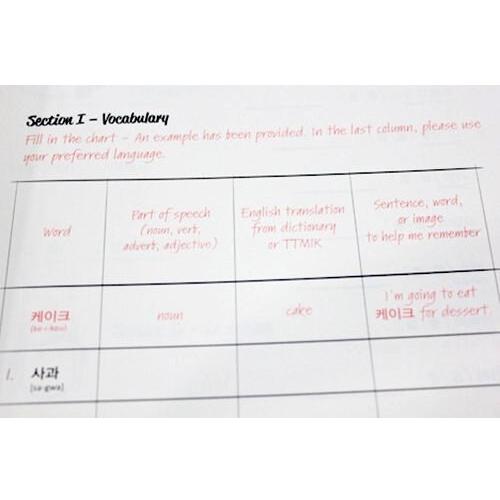 Section I – Vocabulary
Fill in the chart – An example has been provided. In the last column, please use
your preferred language.
Word
Part of speech
(noun, verb,
adverb, adjective)
English translation
from dictionary
or TTMIK
Sentence, word,
or image
to help me remember
케이크
[ke-i-keu]
noun
cake
I'm going to eat
케이크 for dessert.
1. 사과
[sa-gwa]